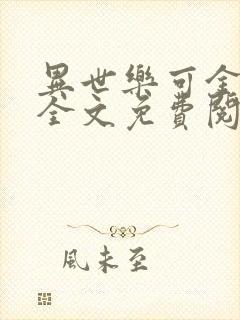 異世樂可全
全文免費閱
風未至